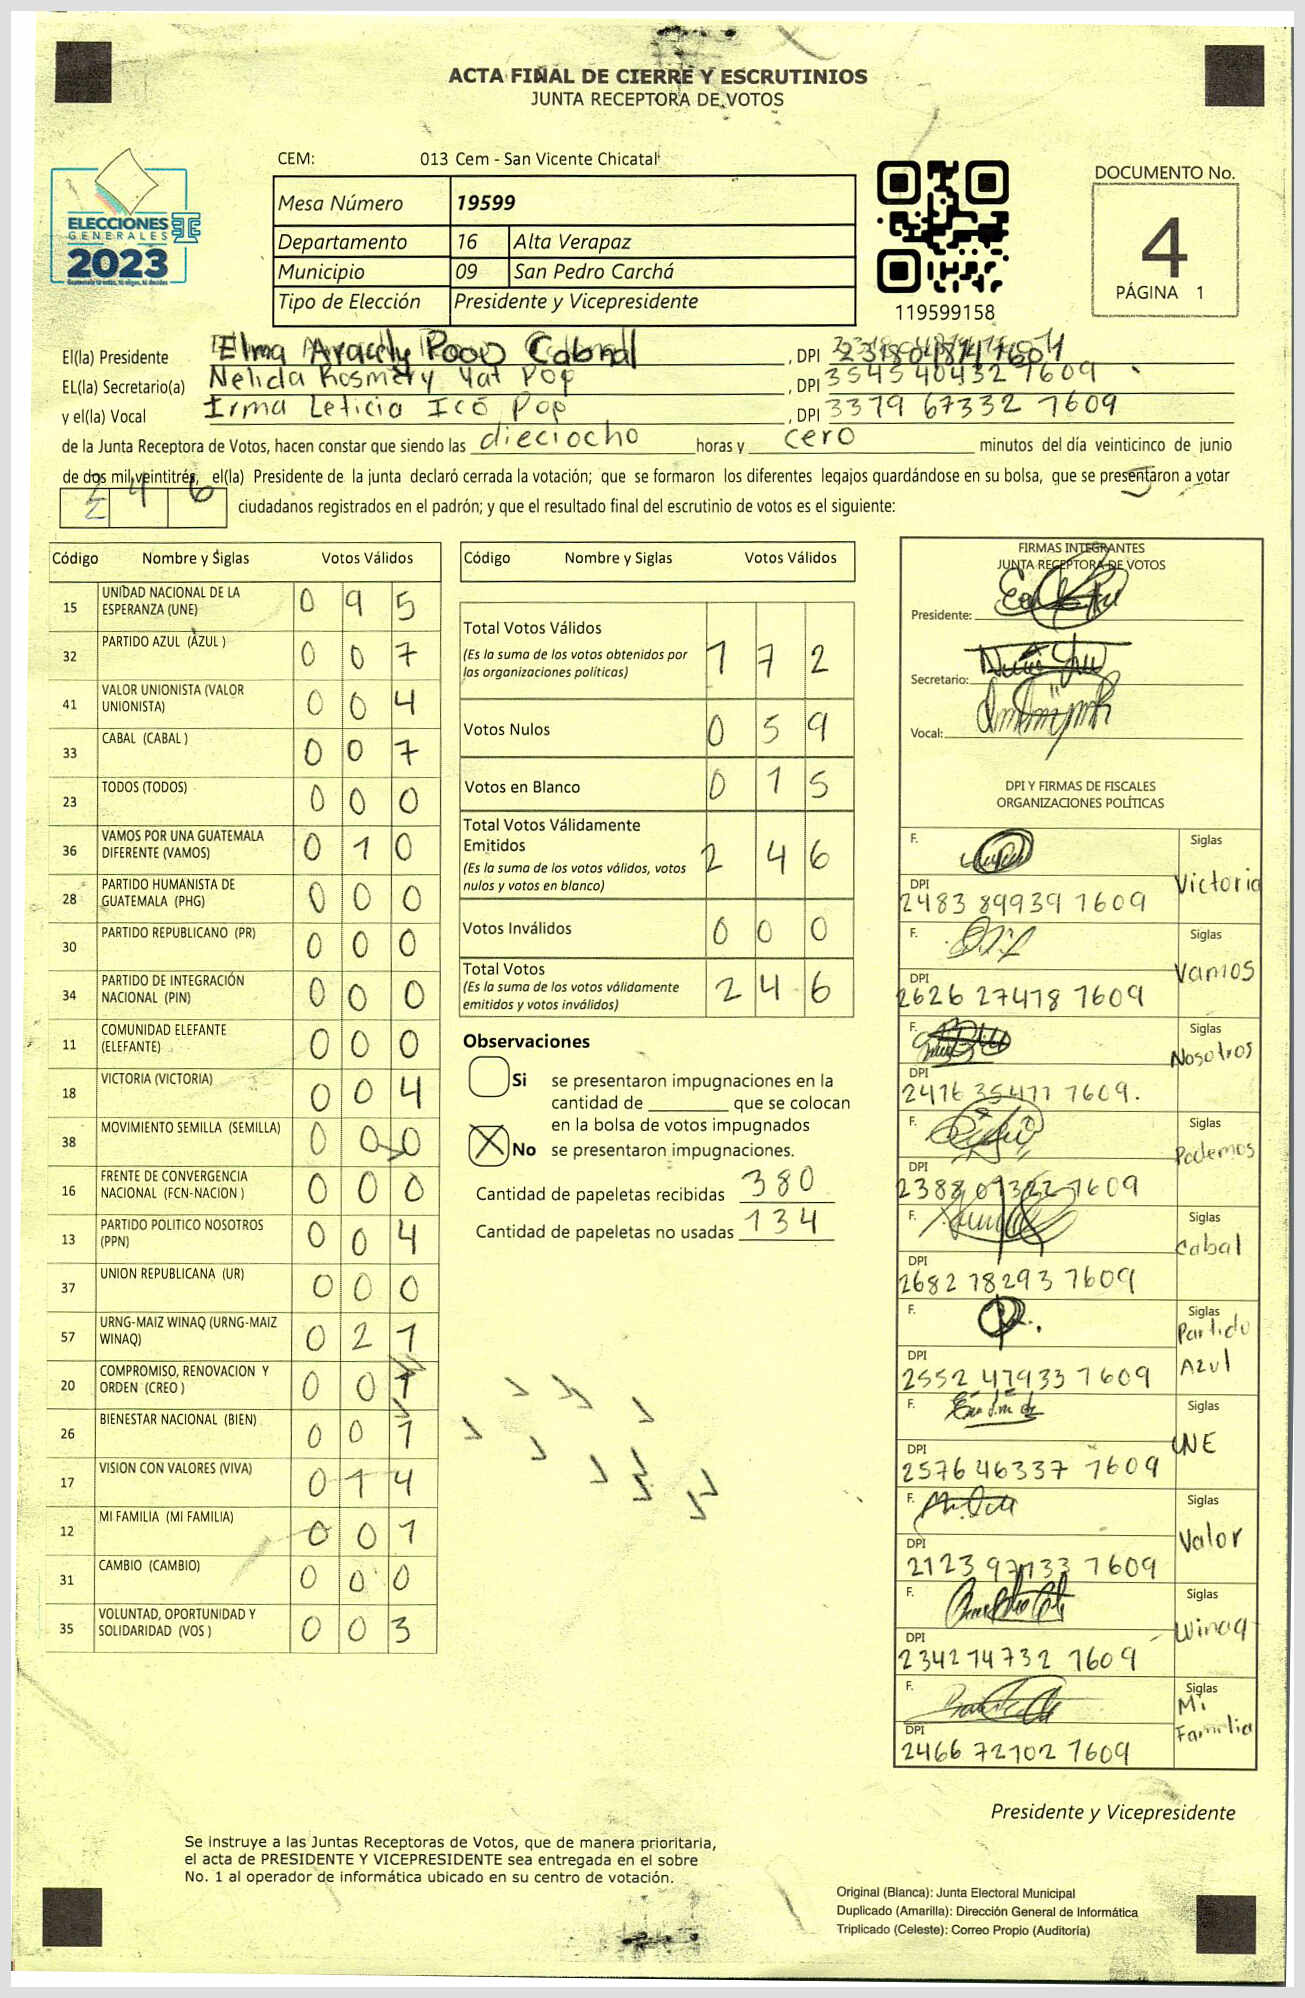 ACTA FINAL DE CIERRE Y ESCRUTINIOS
JUNTA RECEPTORA DE VOTOS
CEM: 013 Cem - San Vicente Chicatal
ELECCIONES
GENERALES
2023
Mesa Número 19599
Departamento 16 Alta Verapaz
Municipio 09 San Pedro Carchá
Tipo de Elección Presidente y Vicepresidente
119599158
DOCUMENTO No.
4
PÁGINA 1
El(la) Presidente Elma Aracely Poou Cabral, DPI
EL(la) Secretario(a) Nelida Rosmery Yat Pop, DPI 3545 40432 1609
y el(la) Vocal Irma Leticia Icó Pop, DPI 3379 67332 1609
de la Junta Receptora de Votos, hacen constar que siendo las dieciocho horas y cero minutos del día veinticinco de junio
de dos mil veintitrés, el(la) Presidente de la junta declaró cerrada la votación; que se formaron los diferentes legajos guardándose en su bolsa, que se presentaron a votar
246 ciudadanos registrados en el padrón; y que el resultado final del escrutinio de votos es el siguiente:
Código Nombre y Siglas Votos Válidos
15 UNIDAD NACIONAL DE LA ESPERANZA (UNE) 0 9 5
32 PARTIDO AZUL (AZUL ) 0 0 7
41 VALOR UNIONISTA (VALOR UNIONISTA) 0 0 4
33 CABAL (CABAL ) 0 0 7
23 TODOS (TODOS) 0 0 0
36 VAMOS POR UNA GUATEMALA DIFERENTE (VAMOS) 0 1 0
28 PARTIDO HUMANISTA DE GUATEMALA (PHG) 0 0 0
30 PARTIDO REPUBLICANO (PR) 0 0 0
34 PARTIDO DE INTEGRACIÓN NACIONAL (PIN) 0 0 0
11 COMUNIDAD ELEFANTE (ELEFANTE) 0 0 0
18 VICTORIA (VICTORIA) 0 0 4
38 MOVIMIENTO SEMILLA (SEMILLA) 0 0 0
16 FRENTE DE CONVERGENCIA NACIONAL (FCN-NACION ) 0 0 0
13 PARTIDO POLITICO NOSOTROS (PPN) 0 0 4
37 UNION REPUBLICANA (UR) 0 0 0
57 URNG-MAIZ WINAQ (URNG-MAIZ WINAQ) 0 2 1
20 COMPROMISO, RENOVACION Y ORDEN (CREO ) 0 0 1
26 BIENESTAR NACIONAL (BIEN) 0 0 1
17 VISION CON VALORES (VIVA) 0 1 4
12 MI FAMILIA (MI FAMILIA) 0 0 1
31 CAMBIO (CAMBIO) 0 0 0
35 VOLUNTAD, OPORTUNIDAD Y SOLIDARIDAD (VOS ) 0 0 3
Código Nombre y Siglas Votos Válidos
Total Votos Válidos 1 7 2
(Es la suma de los votos obtenidos por
las organizaciones políticas)
Votos Nulos 0 5 9
Votos en Blanco 0 1 5
Total Votos Válidamente
Emitidos 2 4 6
(Es la suma de los votos válidos, votos
nulos y votos en blanco)
Votos Inválidos 0 0 0
Total Votos 2 4 6
(Es la suma de los votos válidamente
emitidos y votos inválidos)
Observaciones
Si se presentaron impugnaciones en la
cantidad de ________ que se colocan
en la bolsa de votos impugnados
X No se presentaron impugnaciones.
Cantidad de papeletas recibidas 380
Cantidad de papeletas no usadas 134
FIRMAS INTEGRANTES
JUNTA RECEPTORA DE VOTOS
Presidente:
Secretario:
Vocal:
DPI Y FIRMAS DE FISCALES
ORGANIZACIONES POLÍTICAS
F. Siglas
DPI Victoria
2483 89939 1609
F. Siglas
DPI Vamos
2626 27478 1609
F. Siglas
DPI Nosotros
2476 35477 1609.
F. Siglas
DPI Podemos
2388 07322 1609
F. Siglas
DPI Cabal
2682 78293 7609
F. Siglas
Partido
DPI Azul
2552 47933 1609
F. Siglas
DPI UNE
2576 46337 1609
F. Siglas
DPI Valor
2123 97133 1609
F. Siglas
DPI Winaq
2342 74732 1609
F. Siglas
Mi
DPI Familia
2466 72702 1609
Presidente y Vicepresidente
Se instruye a las Juntas Receptoras de Votos, que de manera prioritaria,
el acta de PRESIDENTE Y VICEPRESIDENTE sea entregada en el sobre
No. 1 al operador de informática ubicado en su centro de votación.
Original (Blanca): Junta Electoral Municipal
Duplicado (Amarilla): Dirección General de Informática
Triplicado (Celeste): Correo Propio (Auditoría)